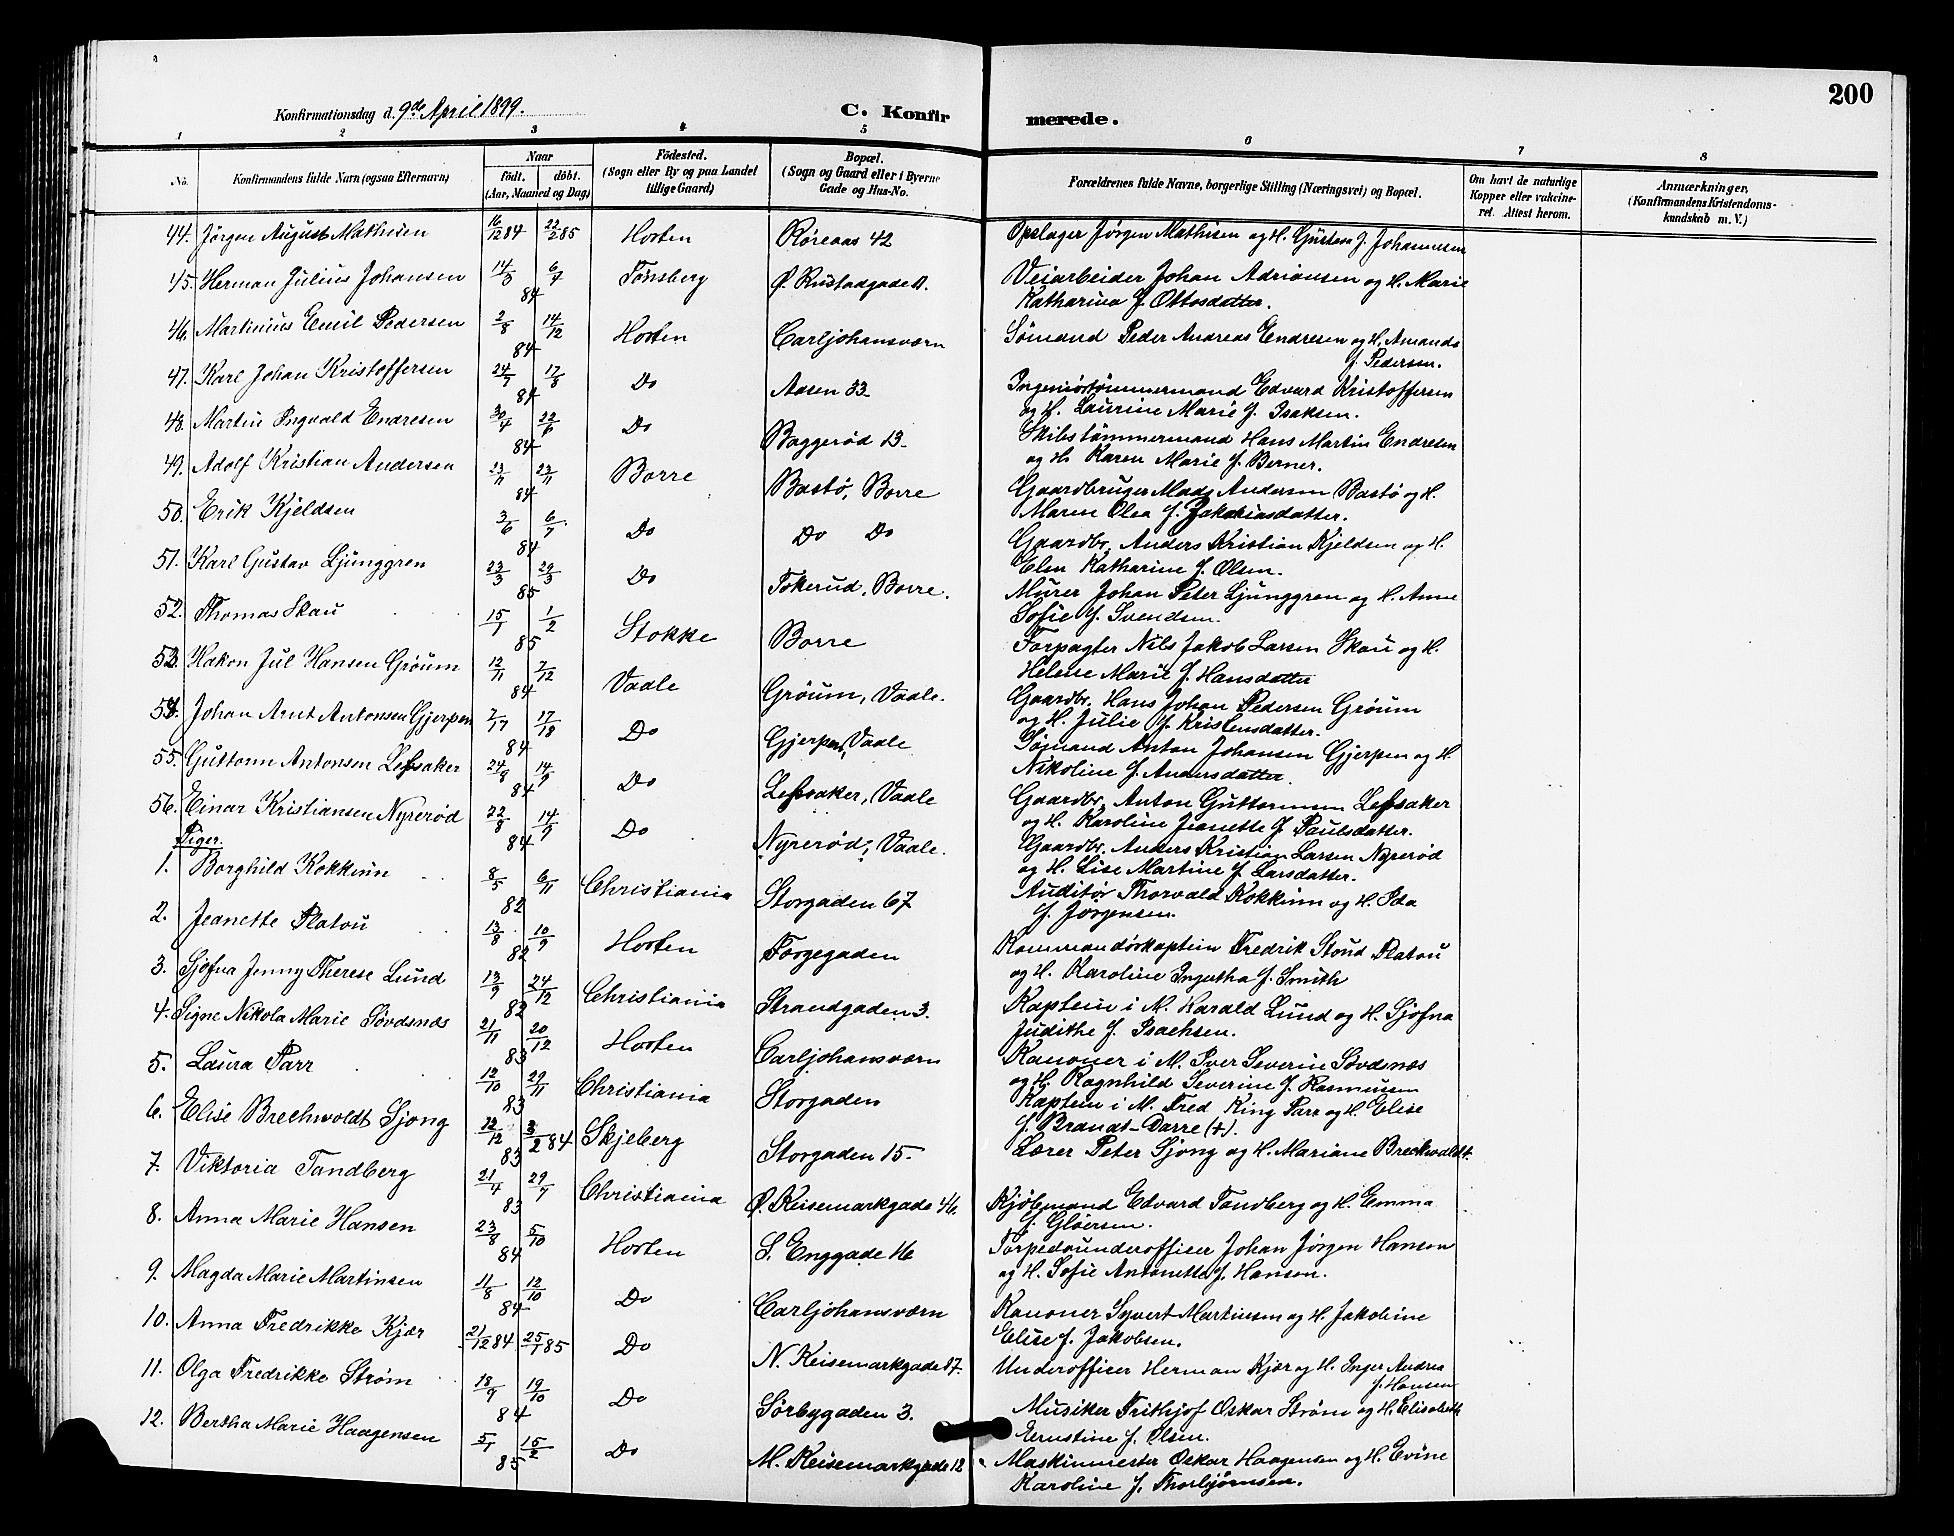 200
Konfirmationsdag d. 9de April 1899.
C. Konfirmerede.
1 2 3 4 5 6 7 8
No.
Konfirmandens fulde Navn (ogsaa Efternavn)
Naar
födt. döbt.
(Aar, Maaned og Dag)
Födested.
(Sogn eller By og paa Landet
tillige Gaard)
Bopæl.
(Sogn og Gaard eller i Byerne
Gade og Hus-No.
Forældrenes fulde Navne, borgerlige Stilling (Næringsvei) og Bopæl.
Om havt de naturlige
Kopper eller vakcine-
ret. Attest herom.
Anmærkninger,
(Konfirmandens Kristendoms-
kundskab m. V.)
44. Jörgen August Mathisen 16/12 84 22/2 85 Horten Röreaas 42 Opslager Jörgen Mathisen og H. Gustava f. Johannesen
45. Herman Julius Johansen 14/3 6/7 84 Tönsberg Ö. Rustadgade Veiarbeider Johan Adriansen og H. Marie
Katharina f. Ottosdatter.
46. Martinius Emil Pedersen 2/8 14/12 84 Horten Carljohansværn Sömand Peder Andreas Endresen og H. Amanda
f. Pedersen.
47. Karl Johan Kristoffersen 24/7 17/8 84 Do Aasen 33 Ingeniörtömmermand Edvard Kristoffersen
og H. Laurine Marie f. Isaksen.
48. Martin Ingvald Endresen 30/4 22/6 84 Do Baggeröd 13 Skibstömmermand Hans Martin Endresen
og H. Karen Marie f. Berner.
49. Adolf Kristian Andersen 23/11 84 Borre Bastö, Borre Gaardbruger Mads Andersen Bastö og H.
Maren Olea f. Zakariasdatter.
50. Erik Kjeldsen 3/6 6/7 84 Do Do Do Gaardbr. Anders Kristian Kjeldsen og H.
Elen Katharine f. Olsen.
51. Karl Gustav Ljunggren 23/3 29/3 85 Do Tokerud, Borre. Murer Johan Peter Ljunggren og H. Anne
Sofie f. Svendsen.
52. Thomas Skau 15/1 1/2 85 Stokke Borre Forpagter Nils Jakob Larsen Skau og H.
Helene Marie f. Hansdatter
53. Hakon Jul Hansen Gröum 12/11 7/12 84 Vaale Gröum, Vaale. Gaardbr. Hans Johan Pedersen Gröum
og H. Julie f. Kristensdatter.
54. Johan Arnt Antonsen Gjerpen 84 Do Gjerpen, Vaale Sömand Anton Johansen Gjerpen og H.
Nikoline f. Andersdatter
55. Guttorm Antonsen Lefsaker 24/8 14/9 84 Do Lefsaker, Vaale Gaardbr. Anton Guttormsen Lefsaker
og H. Karoline Jeanette f. Paulsdatter.
56. Einar Kristiansen Nyreröd 22/8 14/9 84 Do Nyreröd, Vaale. Gaardbr. Anders Kristian Larsen Nyreröd
og H. Lise Martine f. Larsdatter.
Piger.
1. Borghild Kokkinn 8/5 6/11 82 Christiania Storgaden 67 Auditör Thorvald Kokkinn og H. Ida
f. Jörgensen.
2. Jeanette Platou 13/8 10/9 82 Horten Færgegaden Kommandörkaptein Fredrik Stoud Platou
og H. Karoline f. Smith
3. Sjöfna Jenny Therese Lund 13/9 24/12 82 Christiania Strandgaden 3. Kaptein i M. Harald Lund og H. Sjöfna
Judithe f. Isachsen.
4. Signe Nikola Marie Sövdsnæs 21/11 20/12 83 Horten Carljohansværn Kanoner i M. Iver Severin Sövdsnæs
og H. Ragnhild Severine f. Rasmussen
5. Laura Parr 12/10 29/11 83 Christiania Storgaden Kaptein i M. Fred King Parr og H. Elise
f. Brandt-Darre (+).
6. Elise Brechwoldt Sjong 12/12 83 3/2 84 Skjeberg Storgaden 15. Lærer Peter Sjong og H. Mariane Breckwoldt.
7. Viktoria Tandberg 21/4 29/7 83 Christiania Ö. Keisemarkgade 46. Kjöbmand Edvard Tandberg og H. Emma
f. Glöersen.
8. Anna Marie Hansen 23/8 5/10 84 Horten S. Enggade 16 Torpedounderofficer Johan Jörgen Hansen
og H. Sofie Antonette f. Hansen.
9. Magda Marie Martinsen 11/8 12/10 84 Do Carljohansværn Kanoner Syvert Martinsen og H. Jakobine
Elise f. Jakobsen.
10. Anna Fredrikke Kjær 21/12 84 25/1 85 Do N. Keisemarkgade 87. Underofficer Herman Kjær og H. Inger Andrea
f. Hansen
11. Olga Fredrikke Ström 18/9 19/10 84 Do Sörbygaden 3. Musiker Frithjof Oskar Ström og H. Elisabeth
Ernstine f. Olsen.
12. Bertha Marie Haagensen 5/1 15/2 85 Do M. Keisemarkgade 12 Maskinmester Oskar Haagensen og H. Evine
Karoline f. Thorbjörnsen.